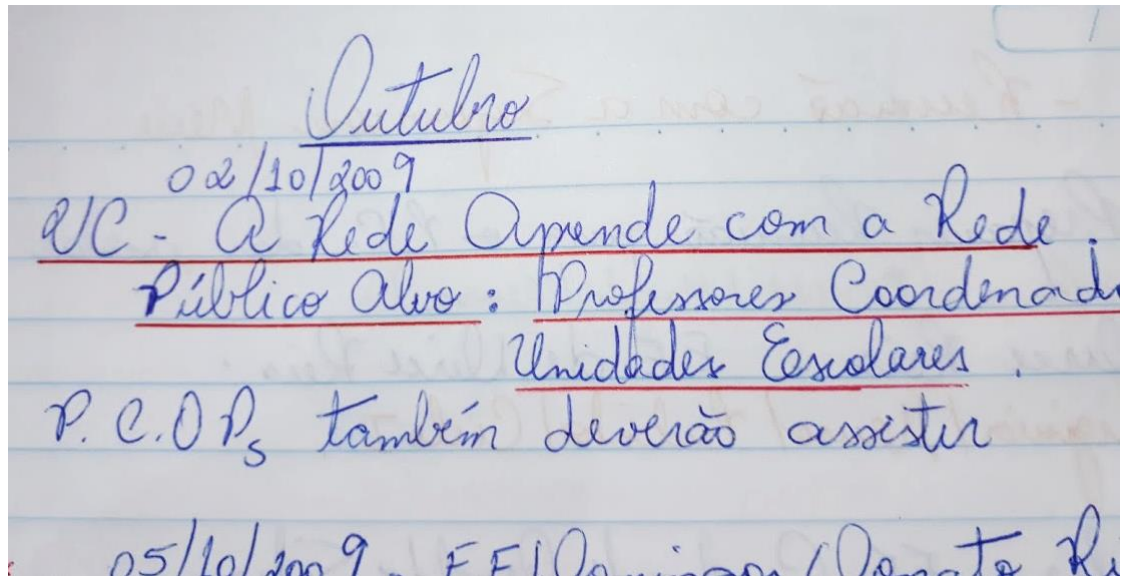 Outubro
02/10/2009
VC - A Rede Aprende com a Rede.
Público Alvo: Professores Coordenad
Unidades Escolares.
P.C.O.Ps também deverão assistir
05/10/2009 - EE/Domingos/Donato Ri